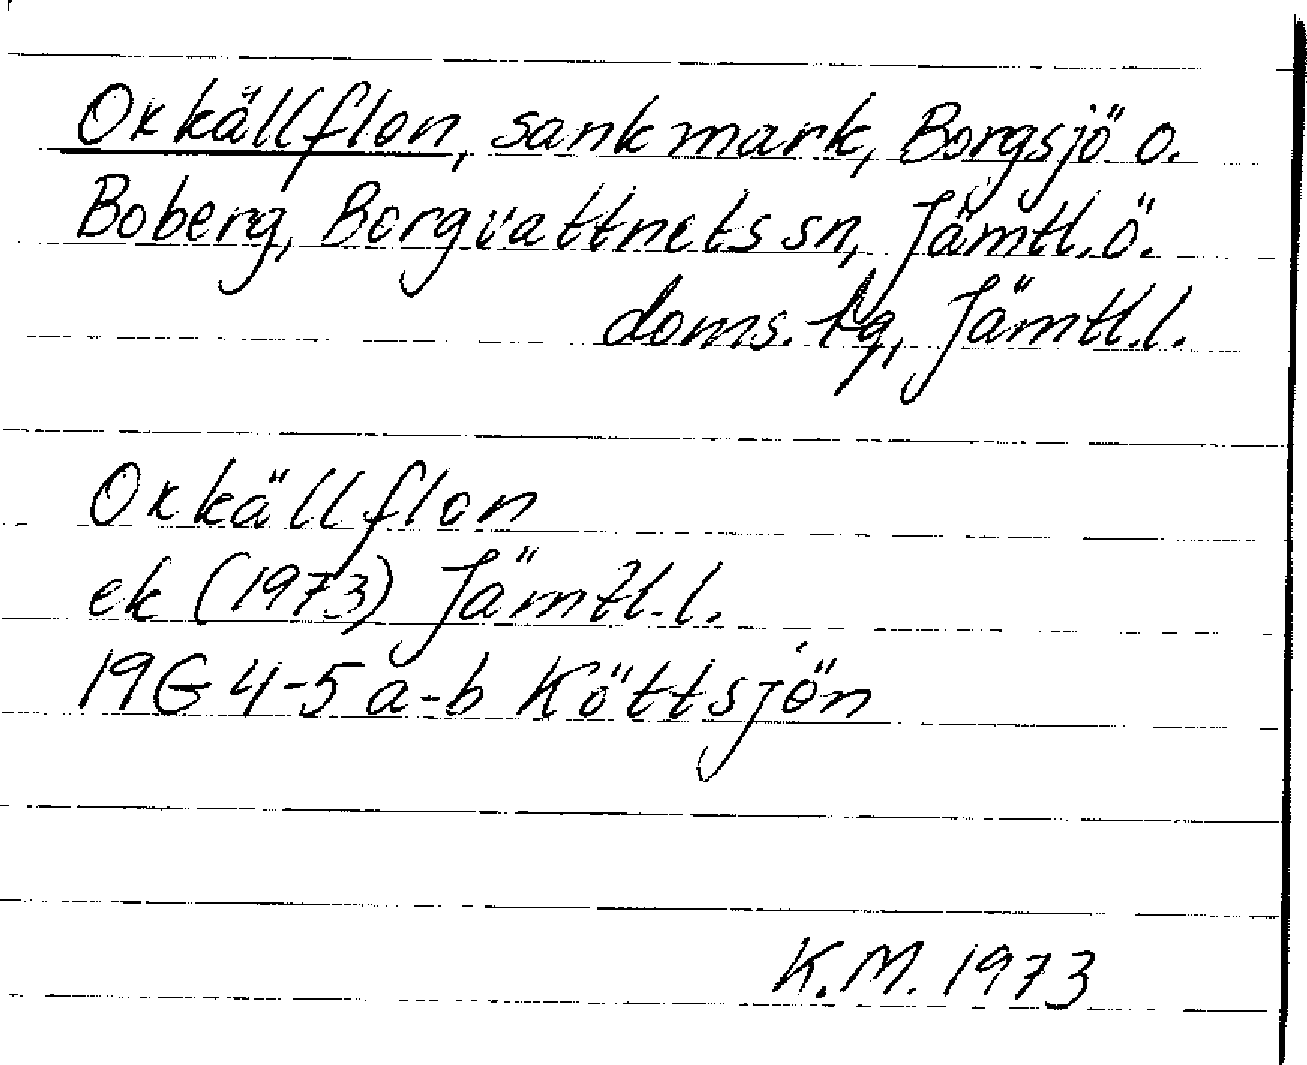 Okkällflon, sank mark, Borgsjö o.
Boberg, Borgvattnets sn, Jämtl. ö.
doms. tg, Jämtl. l.
Okkällflon
ek (1973) Jämtl. l.
19G 4-5 a-b Köttsjön
K. M. 1973